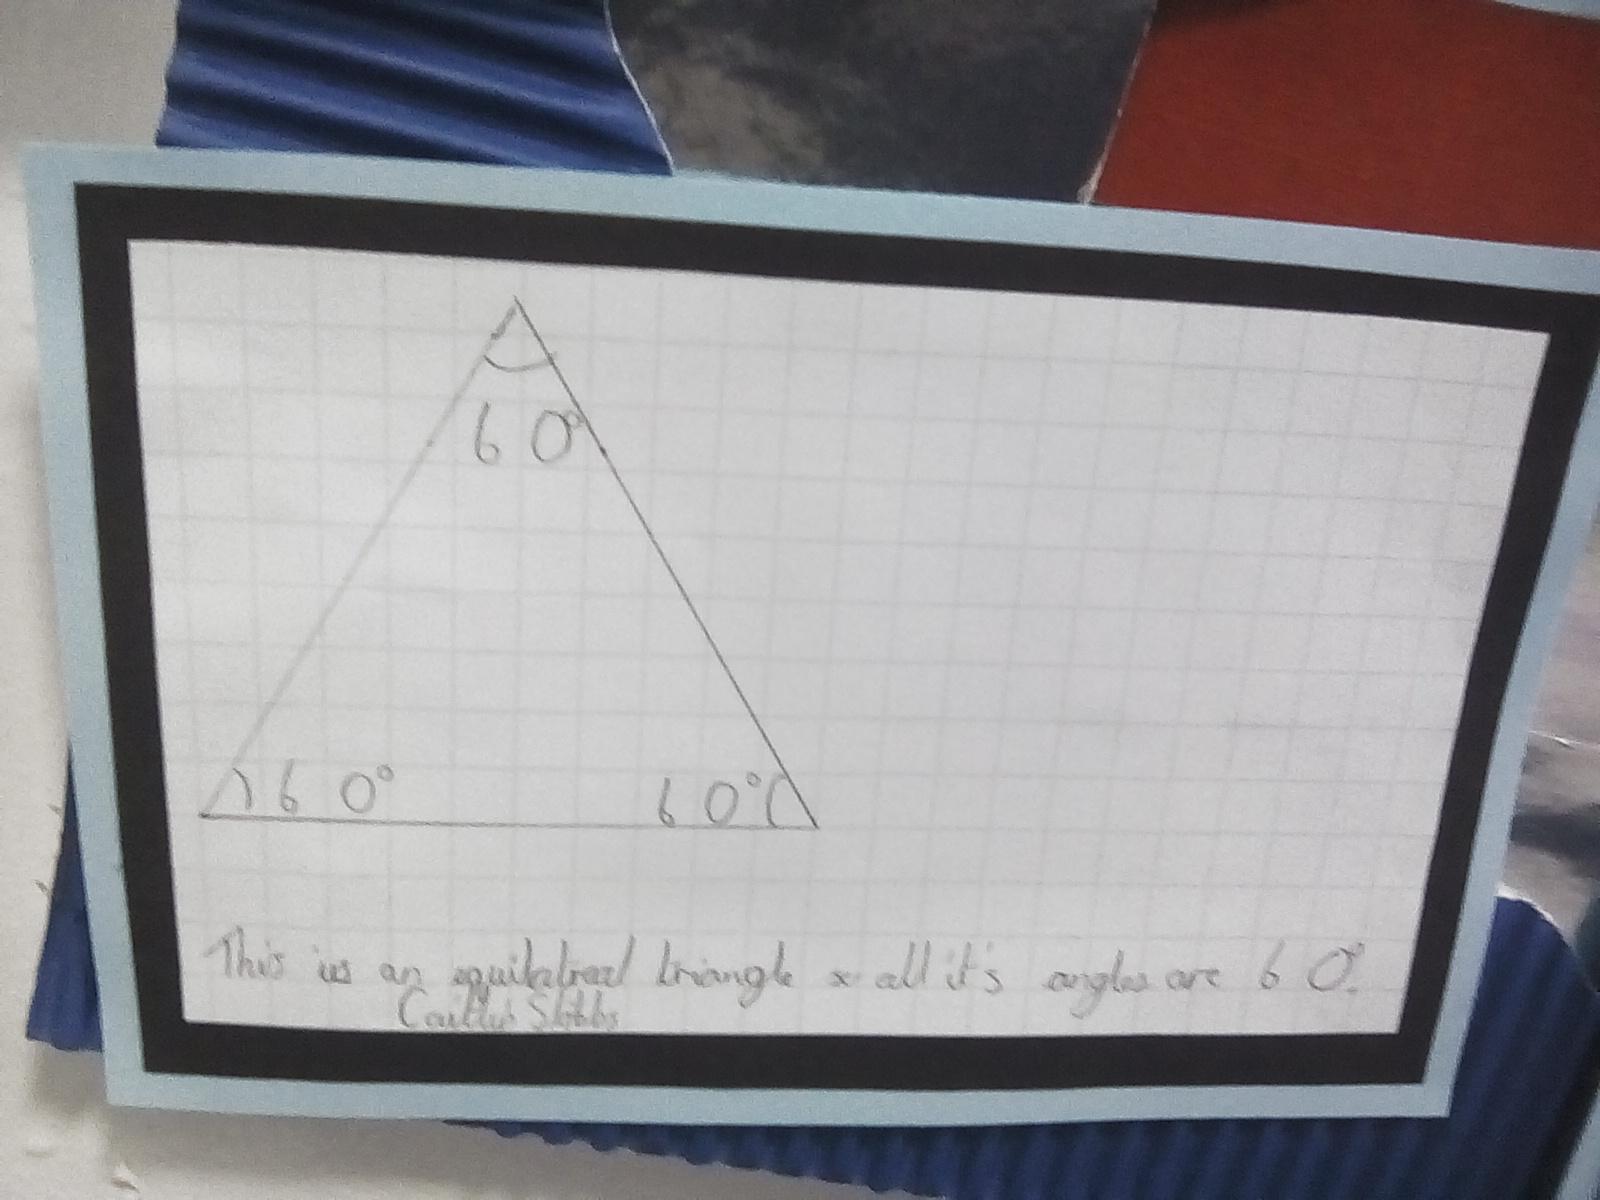 60°
60° 60°
This is an equilatreal triangle & all it's angles are 60°.